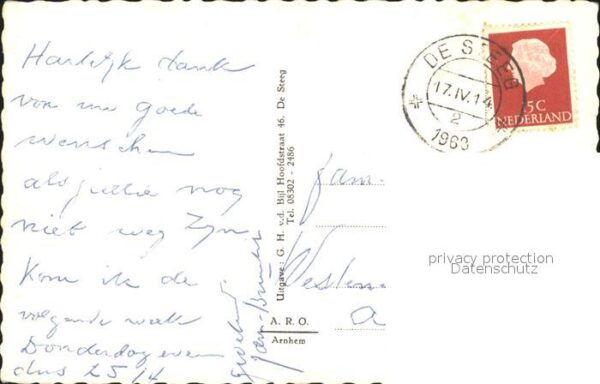 Hartelijk dank
voor uw goede
wenschen
als jullie nog
niet weg zijn
Kom ik de
volgende week
Donderdag even
dus 25/4
Uitgave: G. H. v.d. Bijl Hoofdstraat 46, De Steeg
Tel. 08302 - 2486
A. R. O.
Arnhem
DE STEEG
17.IV.14
2
1963
15C
NEDERLAND
fam.
privacy protection
Datenschutz